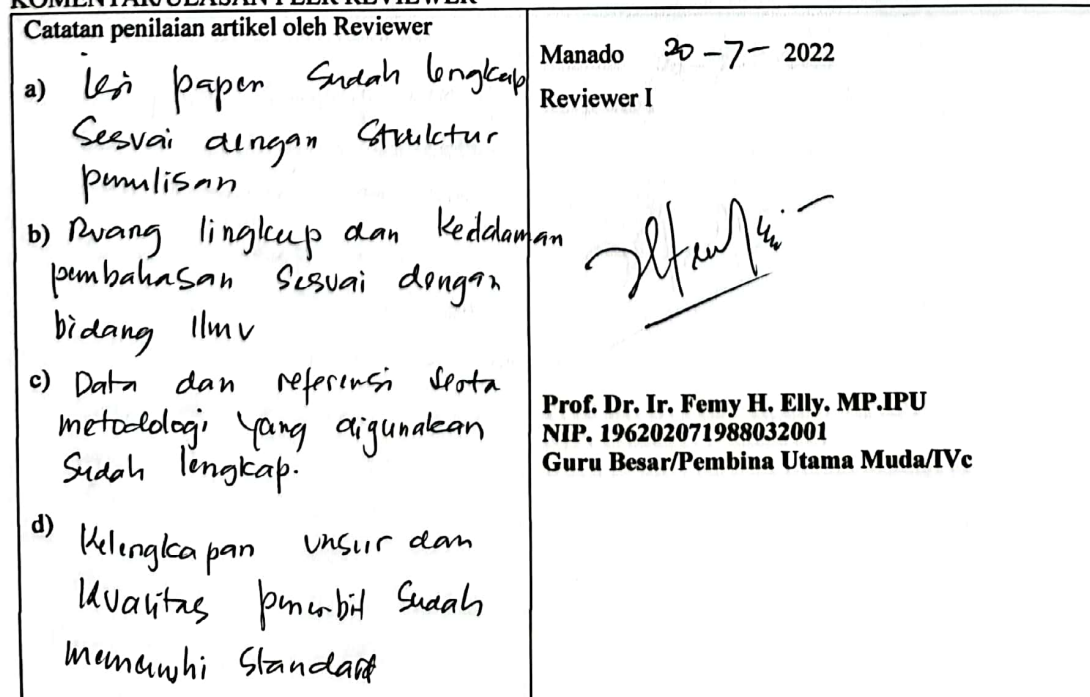 KOMENTAR/ULASAN PEER REVIEWER
Catatan penilaian artikel oleh Reviewer
a) Isi paper sudah lengkap
Sesuai dengan Struktur
penulisan
b) Ruang lingkup dan kedalaman
pembahasan Sesuai dengan
bidang Ilmu
c) Data dan referensi serta
metodologi yang digunakan
Sudah lengkap.
d) Kelengkapan unsur dan
kualitas penerbit Sudah
memenuhi Standard
Manado 20-7-2022
Reviewer I
Prof. Dr. Ir. Femy H. Elly. MP.IPU
NIP. 196202071988032001
Guru Besar/Pembina Utama Muda/IVc